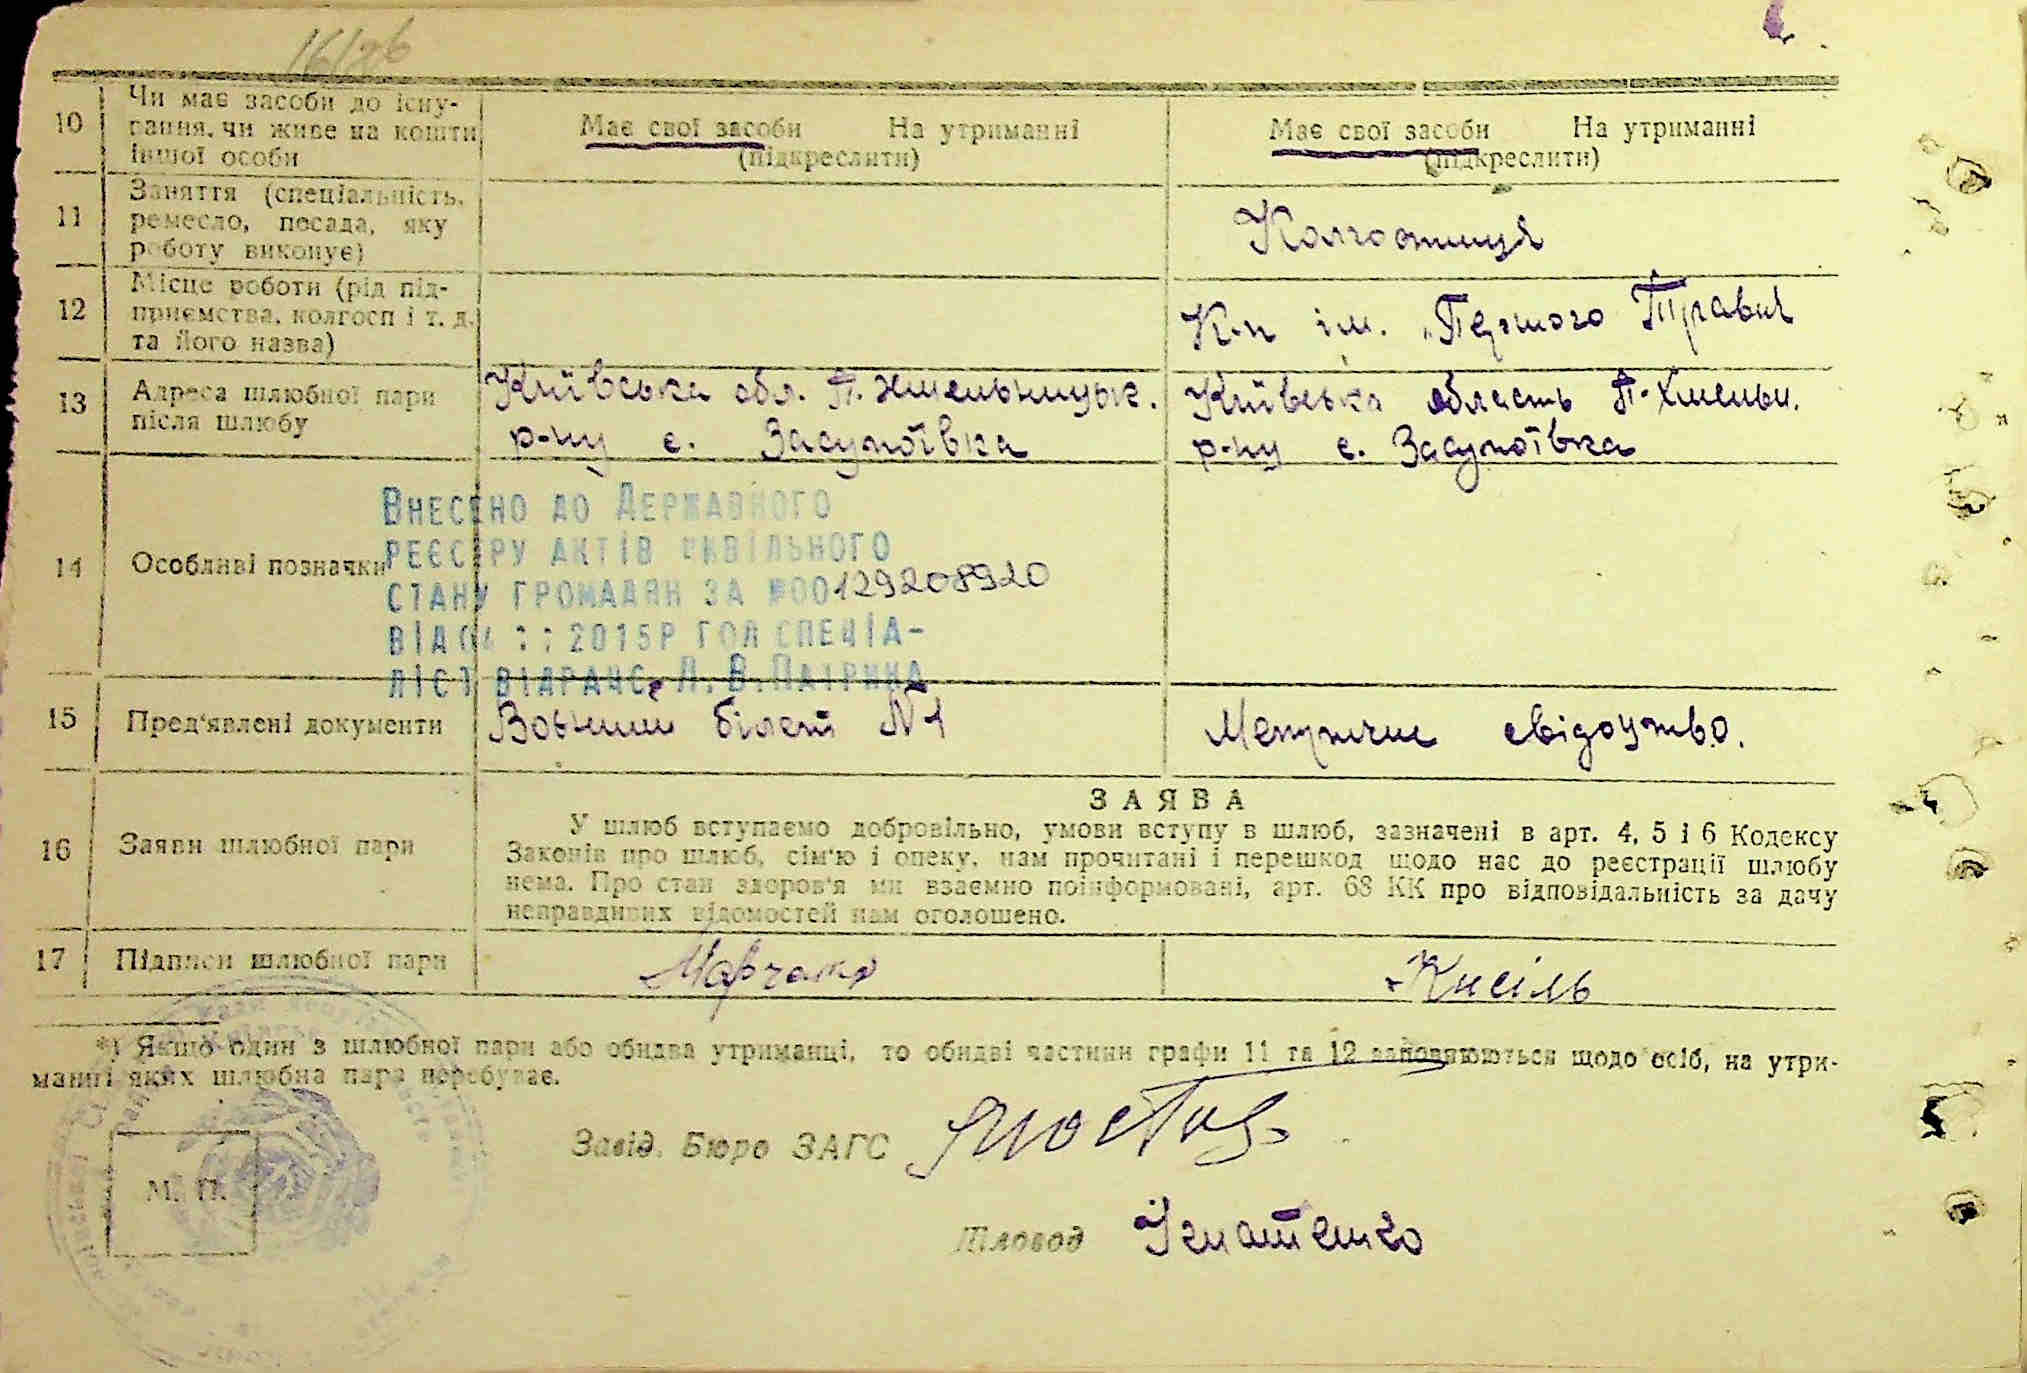 16/26
10 Чи має засоби до існу-
вання, чи живе на кошти
іншої особи
Має свої засоби На утриманні
(підкреслити)
Має свої засоби На утриманні
(підкреслити)
11 Заняття (спеціальність,
ремесло, посада, яку
роботу виконує)
Колгоспниця
12 Місце роботи (рід під-
приємства, колгосп і т. д.
та його назва)
К-п ім. „Першого Травня
13 Адреса шлюбної пари
після шлюбу
Київська обл. П. Хмельницьк.
р-ну с. Засупоївка
Київська область П-Хмельн.
р-ну с. Засупоївка
14 Особливі позначки
Внесено до Державного
реєстру актів цивільного
стану громадян за №00129208920
від 2015р гол спеціа-
ліст відрацс Л. В.
15 Пред'явлені документи
Воєнний білет №1
Метричне свідоцтво.
16 Заяви шлюбної пари
ЗАЯВА
У шлюб вступаємо добровільно, умови вступу в шлюб, зазначені в арт. 4, 5 і 6 Кодексу
Законів про шлюб, сім'ю і опеку, нам прочитані і перешкод щодо нас до реєстрації шлюбу
нема. Про стан здоров'я ми взаємно поінформовані, арт. 68 КК про відповідальність за дачу
неправдивих відомостей нам оголошено.
17 Підписи шлюбної пари
Марченко
Кисіль
*) Якщо один з шлюбної пари або обидва утриманці, то обидві частини графи 11 та 12 заповнюються щодо осіб, на утри-
манні яких шлюбна пара перебуває.
Завід. Бюро ЗАГС
М. П.
Діловод Ігнатенко